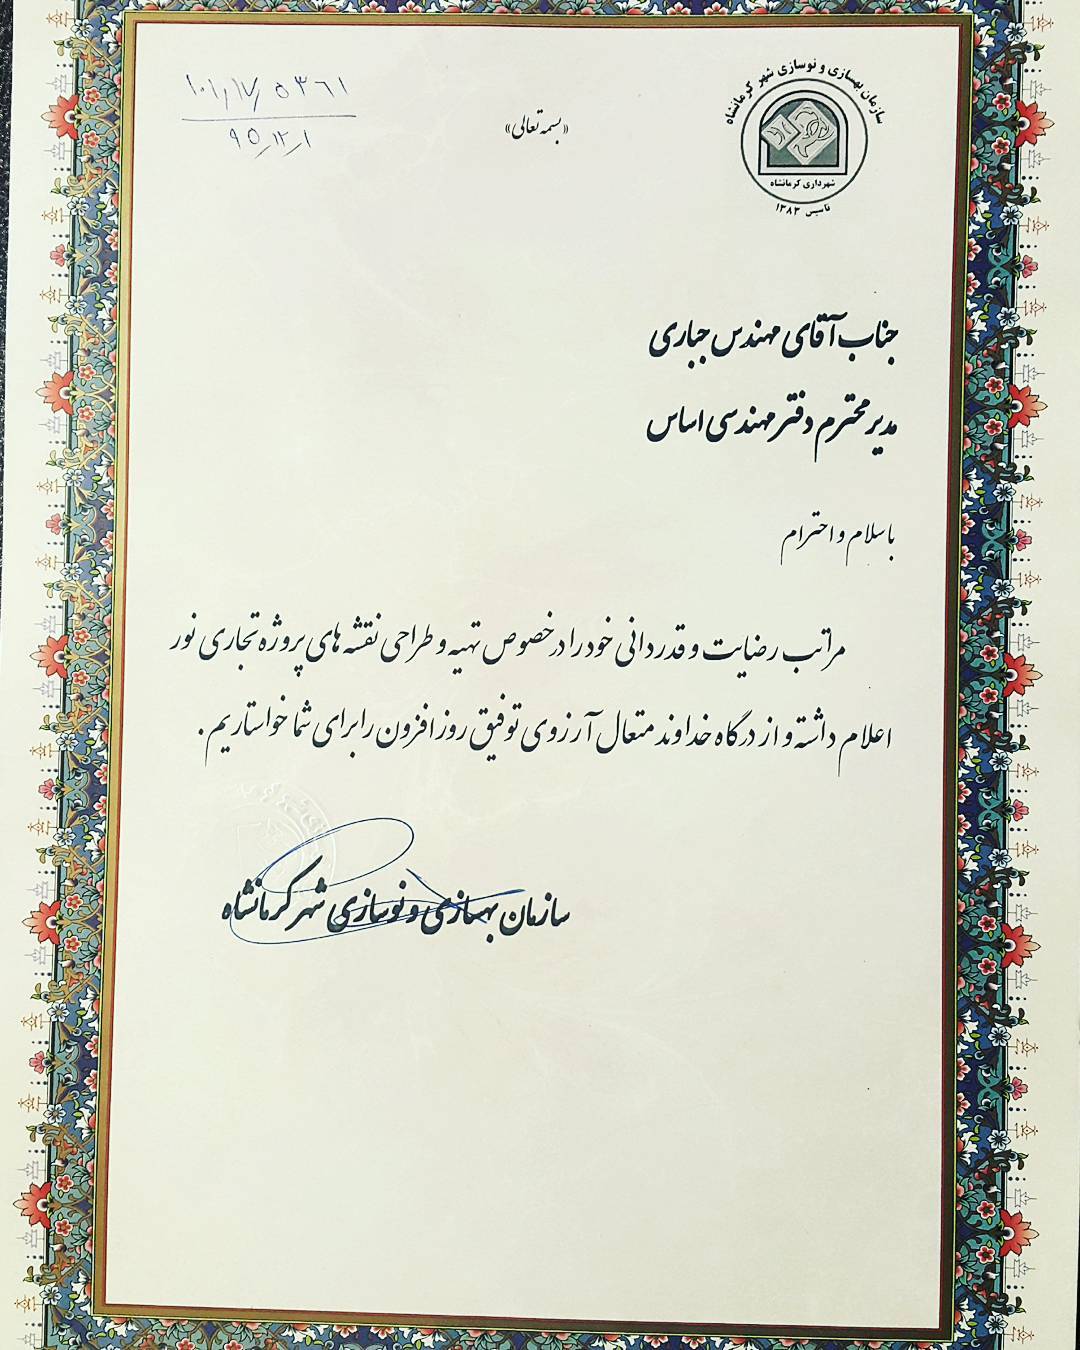 ۱۰۱٫۱۷٫۵۳۶۱
۹۵٫۱۲٫۱
«بسمه تعالی»
سازمان بهسازی و نوسازی شهر کرمانشاه
شهرداری کرمانشاه
تاسیس ۱۳۸۳
جناب آقای مهندس جباری
مدیر محترم دفتر مهندسی اساس
با سلام و احترام
مراتب رضایت و قدردانی خود را در خصوص تهیه و طراحی نقشه های پروژه تجاری نور
اعلام داشته و از درگاه خداوند متعال آرزوی توفیق روز افزون را برای شما خواستاریم.
سازمان بهسازی و نوسازی شهر کرمانشاه